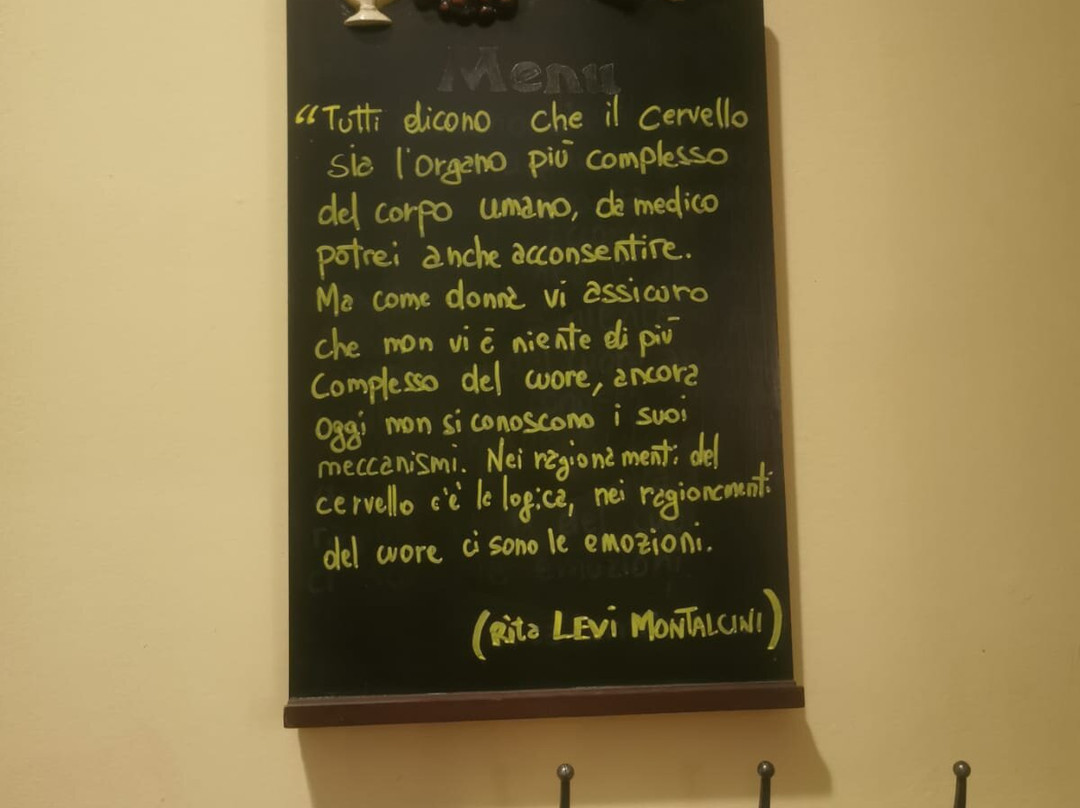 Menu
“Tutti dicono che il cervello
sia l'organo più complesso
del corpo umano, da medico
potrei anche acconsentire.
Ma come donna vi assicuro
che non vi è niente di più
complesso del cuore, ancora
oggi non si conoscono i suoi
meccanismi. Nei ragionamenti del
cervello c'è la logica, nei ragionamenti
del cuore ci sono le emozioni.
(Rita LEVI MONTALCINI)